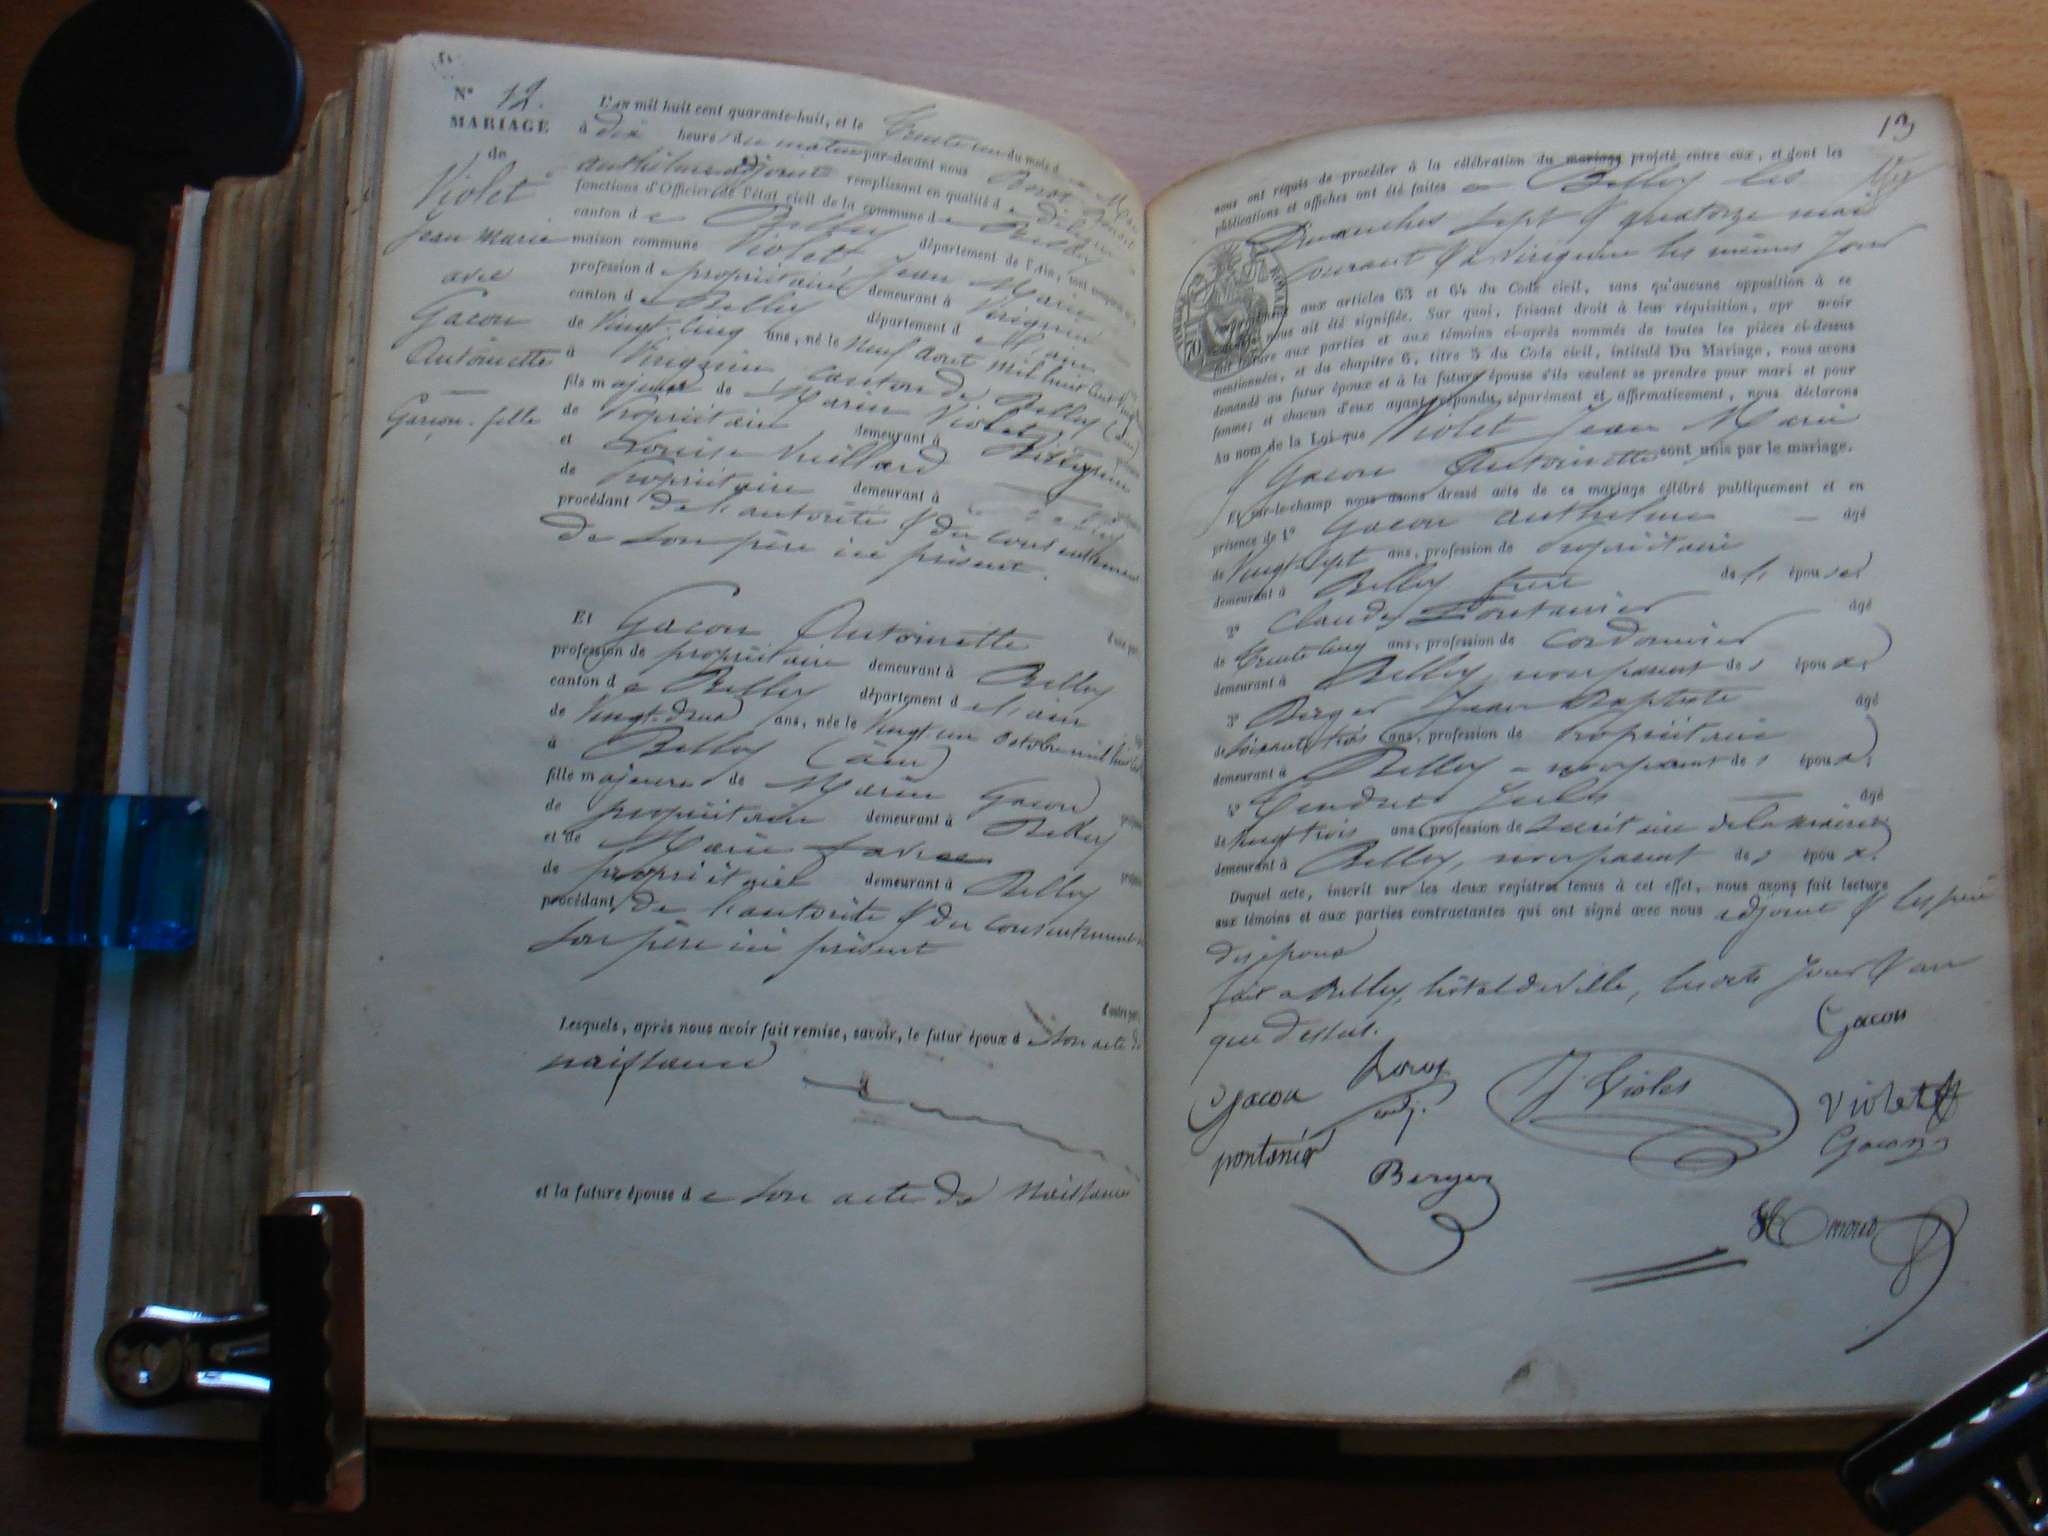 N° 12.
MARIAGE
de
Violet
Jean Marie
avec
Gacon
Antoinette
Garçon. fille
L'an mil huit cent quarante-huit, et le trente un du mois de Mai
à dix heures du matin par-devant nous Benoit
anthelme adjoint remplissant en qualité de délégué
fonctions d'Officier de l'état civil de la commune de Belley
canton de Belley département de l'Ain, sont comparus
maison commune Violet Jean Marie
profession de propriétaire demeurant à Virignin
canton de Belley département de l'ain
de Vingt-cinq ans, né le neuf aout mil huit cent vingt
à Virignin canton de Belley (ain)
fils majeur de Marin Violet
de propriétaire demeurant à Virignin
et Louise Vuillard
de Propriétaire demeurant à
procédant de l'autorité & du consentement
de son père ici présent.
d'une part,
Et Gacon Antoinette
profession de propriétaire demeurant à Belley
canton de Belley département de l'ain
de Vingt-deux ans, née le Vingt un octobre mil huit cent
à Belley (ain)
fille majeure de Marin Gacon
de propriétaire demeurant à Belley
et de Marie
de propriétaire demeurant à Belley
procédant de l'autorité & du consentement
son père ici présent
d'autre part,
Lesquels, après nous avoir fait remise, savoir, le futur époux de son acte de
naissance
et la future épouse de son acte de naissance
13
nous ont requis de procéder à la célébration du mariage projeté entre eux, et dont les
publications et affiches ont été faites à Belley les
Dimanches sept & quatorze mai
courant & à Virignin les mêmes jour
aux articles 63 et 64 du Code civil, sans qu'aucune opposition à ce
nous ait été signifiée. Sur quoi, faisant droit à leur réquisition, apr avoir
fait lecture aux parties et aux témoins ci-après nommés de toutes les pièces ci-dessus
mentionnées, et du chapitre 6, titre 5 du Code civil, intitulé Du Mariage, nous avons
demandé au futur époux et à la future épouse s'ils veulent se prendre pour mari et pour
femme; et chacun d'eux ayant répondu séparément et affirmativement, nous déclarons
Au nom de la Loi que Violet Jean Marie
& Gacon Antoinette sont unis par le mariage.
Et sur-le-champ nous avons dressé acte de ce mariage célébré publiquement et en
présence de 1° Gacon anthelme âgé
de Vingt-sept ans, profession de propriétaire
demeurant à Belley frère de l'épouse
2° Claude Pontanier âgé
de trente cinq ans, profession de cordonnier
demeurant à Belley, non parent des époux
3° Berger Jean Baptiste âgé
de soixante trois ans, profession de propriétaire
demeurant à Belley - non parent des époux,
4° Jules âgé
de vingt trois ans, profession de secrétaire de la mairie
demeurant à Belley, non parent des époux.
Duquel acte, inscrit sur les deux registres tenus à cet effet, nous avons fait lecture
aux témoins et aux parties contractantes qui ont signé avec nous adjoint & les père
des époux
fait a Belley, hôtel de ville, les dits jour & an
que dessus.
Gacon
Gacon adj. J Violet Violet
pontanier Gacon
Berger